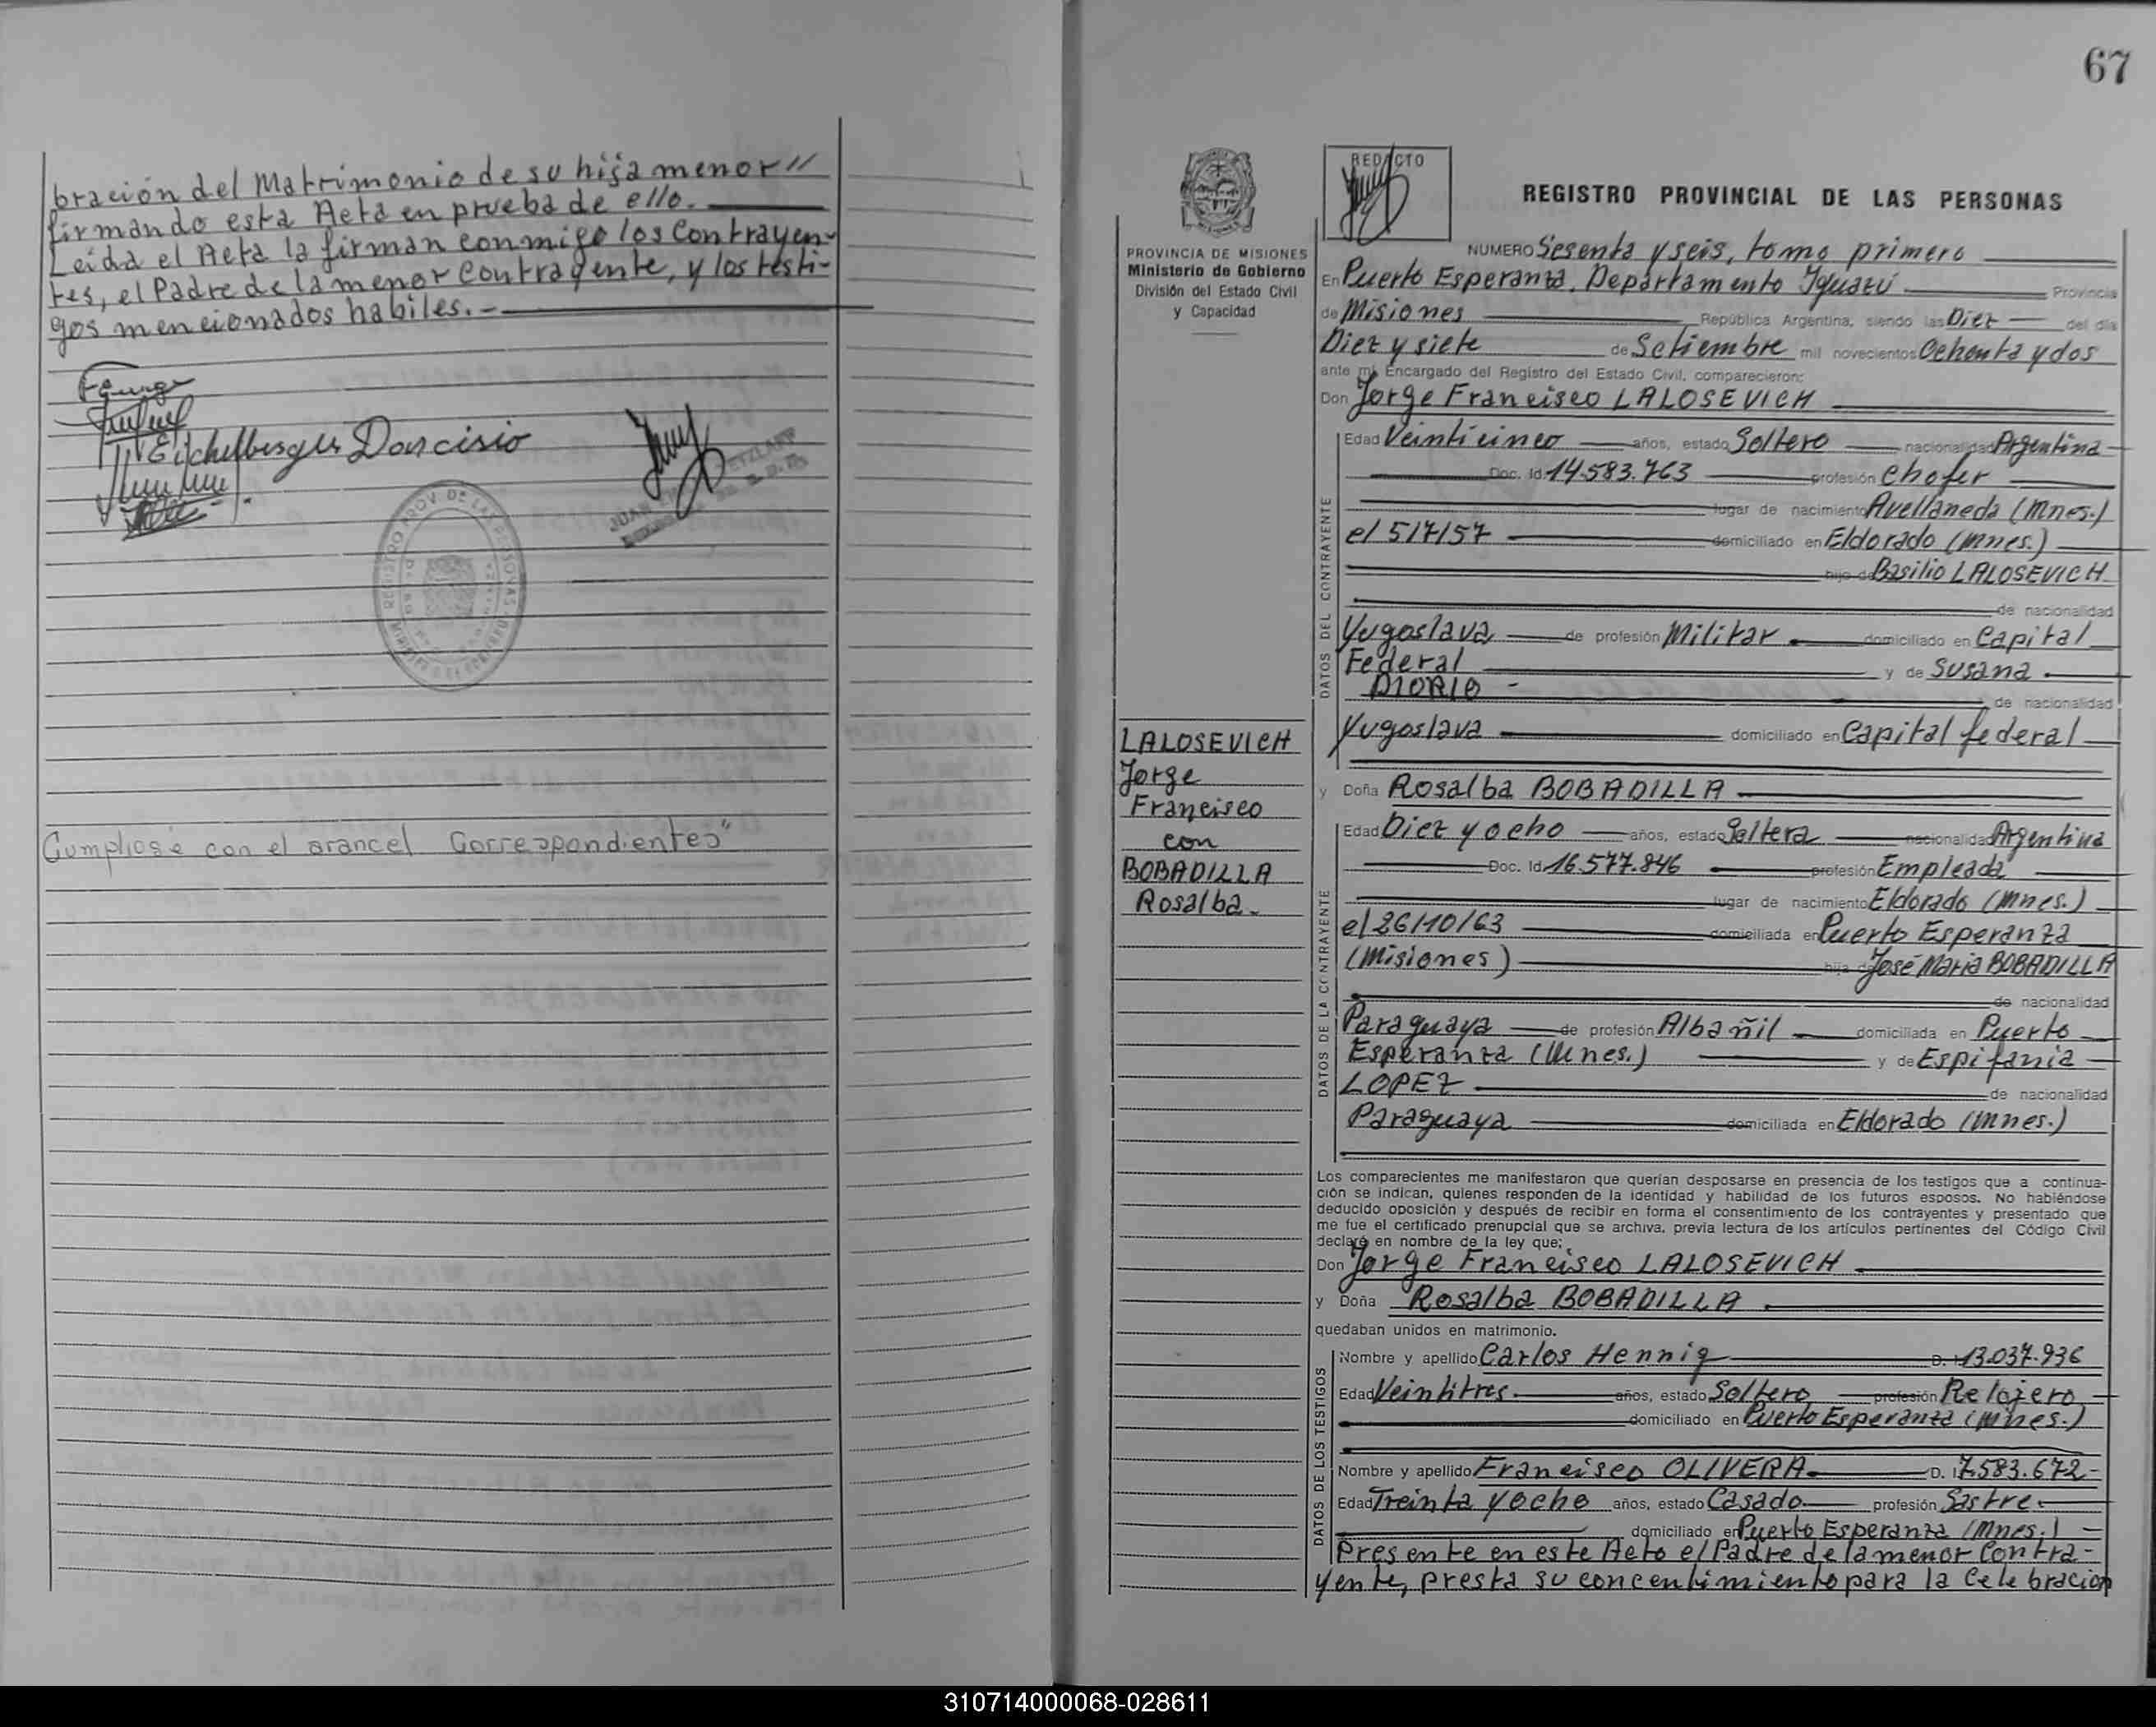 bración del Matrimonio de su hija menor //
firmando esta Acta en prueba de ello.
Leida el Acta la firman conmigo los Contrayen-
tes, el Padre de la menor Contrayente, y los testi-
gos mencionados habiles. -
Eichelberger Darcisio
Cumpliose con el arancel Correspondientes"
67
REDACTO
REGISTRO PROVINCIAL DE LAS PERSONAS
PROVINCIA DE MISIONES
Ministerio de Gobierno
División del Estado Civil
y Capacidad
NUMERO Sesenta y seis, tomo primero
En Puerto Esperanza, Departamento Yguazú Provincia
de Misiones República Argentina, siendo las Diez del día
Diez y siete de Setiembre mil novecientos Ochenta y dos
ante mí, Encargado del Registro del Estado Civil, comparecieron:
Don Jorge Francisco LALOSEVICH
DATOS DEL CONTRAYENTE
Edad Veinticinco años, estado Soltero nacionalidad Argentina
Doc. Id. 14.583.763 profesión Chofer
lugar de nacimiento Avellaneda (Mnes.)
el 5/7/57 domiciliado en Eldorado (Mnes.)
hijo de Basilio LALOSEVICH
de nacionalidad
Yugoslava de profesión Militar domiciliado en Capital
Federal y de Susana
DIORIO - de nacionalidad
Yugoslava domiciliado en Capital federal
LALOSEVICH
Jorge
Francisco
con
BOBADILLA
Rosalba
y Doña Rosalba BOBADILLA
DATOS DE LA CONTRAYENTE
Edad Diez y ocho años, estado Soltera nacionalidad Argentina
Doc. Id. 16.577.846 profesión Empleada
lugar de nacimiento Eldorado (Mnes.)
el 26/10/63 domiciliada en Puerto Esperanza
(Misiones) hija de José Maria BOBADILLA
de nacionalidad
Paraguaya de profesión Albañil domiciliada en Puerto
Esperanza (Mnes.) y de Espifania
LOPEZ de nacionalidad
Paraguaya domiciliada en Eldorado (Mnes.)
Los comparecientes me manifestaron que querían desposarse en presencia de los testigos que a continua-
ción se indican, quienes responden de la identidad y habilidad de los futuros esposos. No habiéndose
deducido oposición y después de recibir en forma el consentimiento de los contrayentes y presentado que
me fue el certificado prenupcial que se archiva, previa lectura de los artículos pertinentes del Código Civil
declaré en nombre de la ley que;
Don Jorge Francisco LALOSEVICH
y Doña Rosalba BOBADILLA
quedaban unidos en matrimonio.
DATOS DE LOS TESTIGOS
Nombre y apellido Carlos Hennig D. I. 13.037.936
Edad Veintitres años, estado Soltero profesión Relojero
domiciliado en Puerto Esperanza (Mnes.)
Nombre y apellido Francisco OLIVERA D. I. 7.583.672-
Edad Treinta y ocho años, estado Casado profesión Sastre
domiciliado en Puerto Esperanza (Mnes.) -
Presente en este Acto el Padre de la menor Contra-
yente, presta su concentimiento para la Celebracion
310714000068-028611